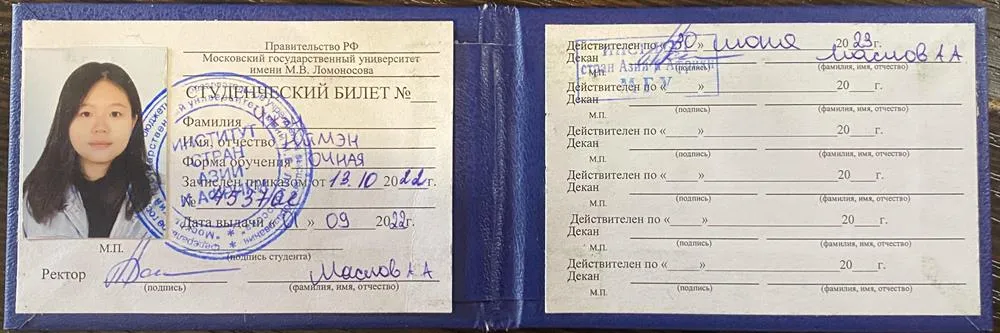 Правительство РФ
Московский государственный университет
имени М.В. Ломоносова
СТУДЕНЧЕСКИЙ БИЛЕТ №
Фамилия
Имя, отчество
Форма обучения ОЧНАЯ
Зачислен приказом от 13.10 2022г.
№
Дата выдачи « » 09 2022г.
М.П.
(подпись студента)
Ректор Маслов А А
(подпись) (фамилия, имя, отчество)
ИНСТИТУТ
СТРАН
АЗИИ
И АФРИКИ
Действителен по «30» июня 2023г.
Декан Маслов А А
М.П. (подпись) (фамилия, имя, отчество)
стран Азии и Африки
МГУ
Действителен по « » 20 г.
Декан
М.П. (подпись) (фамилия, имя, отчество)
Действителен по « » 20 г.
Декан
М.П. (подпись) (фамилия, имя, отчество)
Действителен по « » 20 г.
Декан
М.П. (подпись) (фамилия, имя, отчество)
Действителен по « » 20 г.
Декан
М.П. (подпись) (фамилия, имя, отчество)
Действителен по « » 20 г.
Декан
М.П. (подпись) (фамилия, имя, отчество)